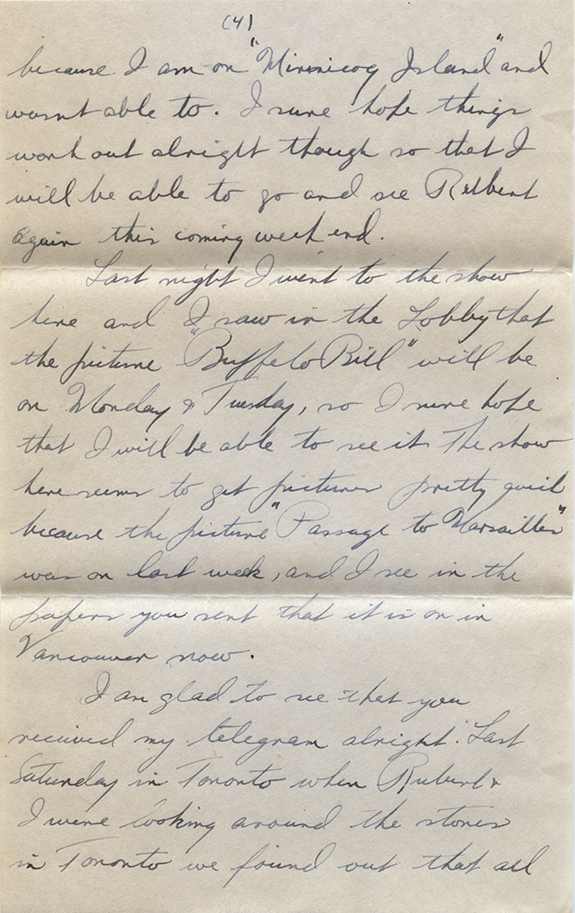 (4)
because I am on "Minnicog Island" and
wasnt able to. I sure hope things
work out alright though so that I
will be able to go and see Rubert
again this coming week end.
Last night I went to the show
here and I saw in the Lobby that
the picture "Buffalo Bill" will be
on Monday & Tuesday, so I sure hope
that I will be able to see it. The show
here seems to get pictures pretty quick
because the picture "Passage to Marsailles"
was on last week, and I see in the
papers you sent that it is on in
Vancouver now.
I am glad to see that you
received my telegram alright. Last
Saturday in Toronto when Rubert &
I were looking around the stores
in Toronto we found out that all